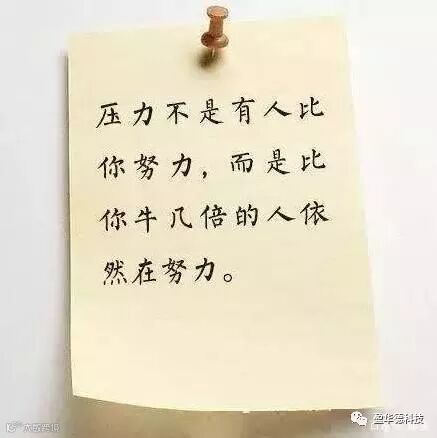 压力不是有人比
你努力，而是比
你牛几倍的人依
然在努力。
盈华德科技